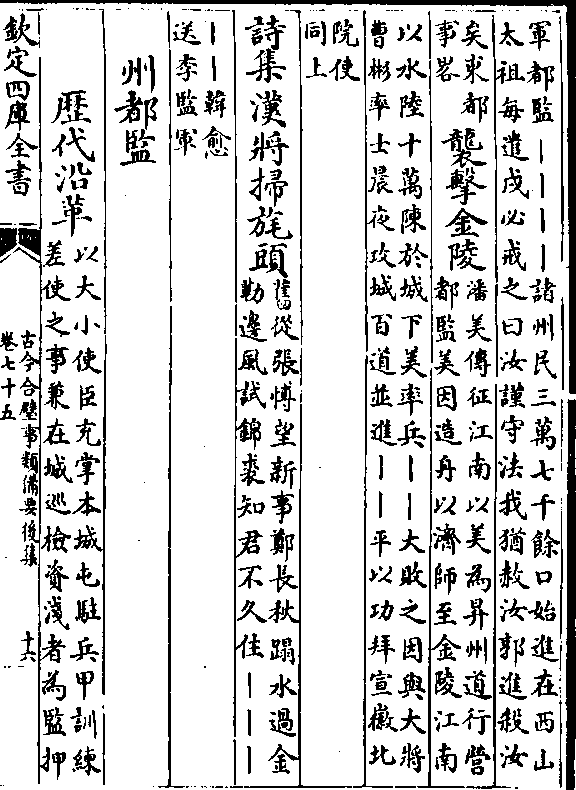 軍都監｜｜｜｜諸州民三萬七千餘口始進在西山
太祖每遣戍必戒之曰汝謹守法我猶赦汝郭進殺汝
矣東都
事畧
襲擊金陵
潘美傳征江南以美為昇州道行營
都監美因造舟以濟師至金陵江南
以水陸十萬陳於城下美率兵｜｜大敗之因與大將
曹彬率士晨夜攻城百道並進｜｜平以功拜宣徽北
院使
同上
詩集
漢將掃旄頭
舊從張博望新事鄭長秋蹋水過金
勒邊風試錦裘知君不久住｜｜｜
｜｜韓愈
送李監軍
州都監
歴代沿革
以大小使臣充掌本城屯駐兵甲訓練
差使之事兼在城巡檢資淺者為監押
欽定四庫全書
古今合璧事類備要後集
卷七十五
十六